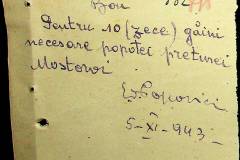 Bon
Pentru 10 (zece) găini
necesare popotei preturei
Mostovoi
E. Popovici
5-XI-943